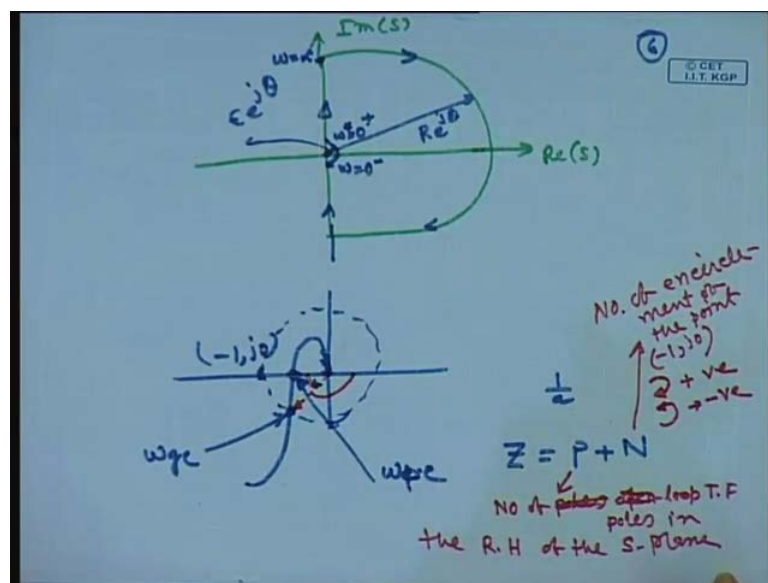 Im(s)
6
© CET
I.I.T. KGP
εe^jθ
ω=0⁺
Re^jθ
ω=0⁻
Re(s)
(-1, j0)
ωgc
ωpc
1/a
NO. of encircle-
ment of
the point
(-1, j0)
+ve
→ -ve
Z = P + N
No of poles open loop T.F
poles in
the R.H of the S-plane